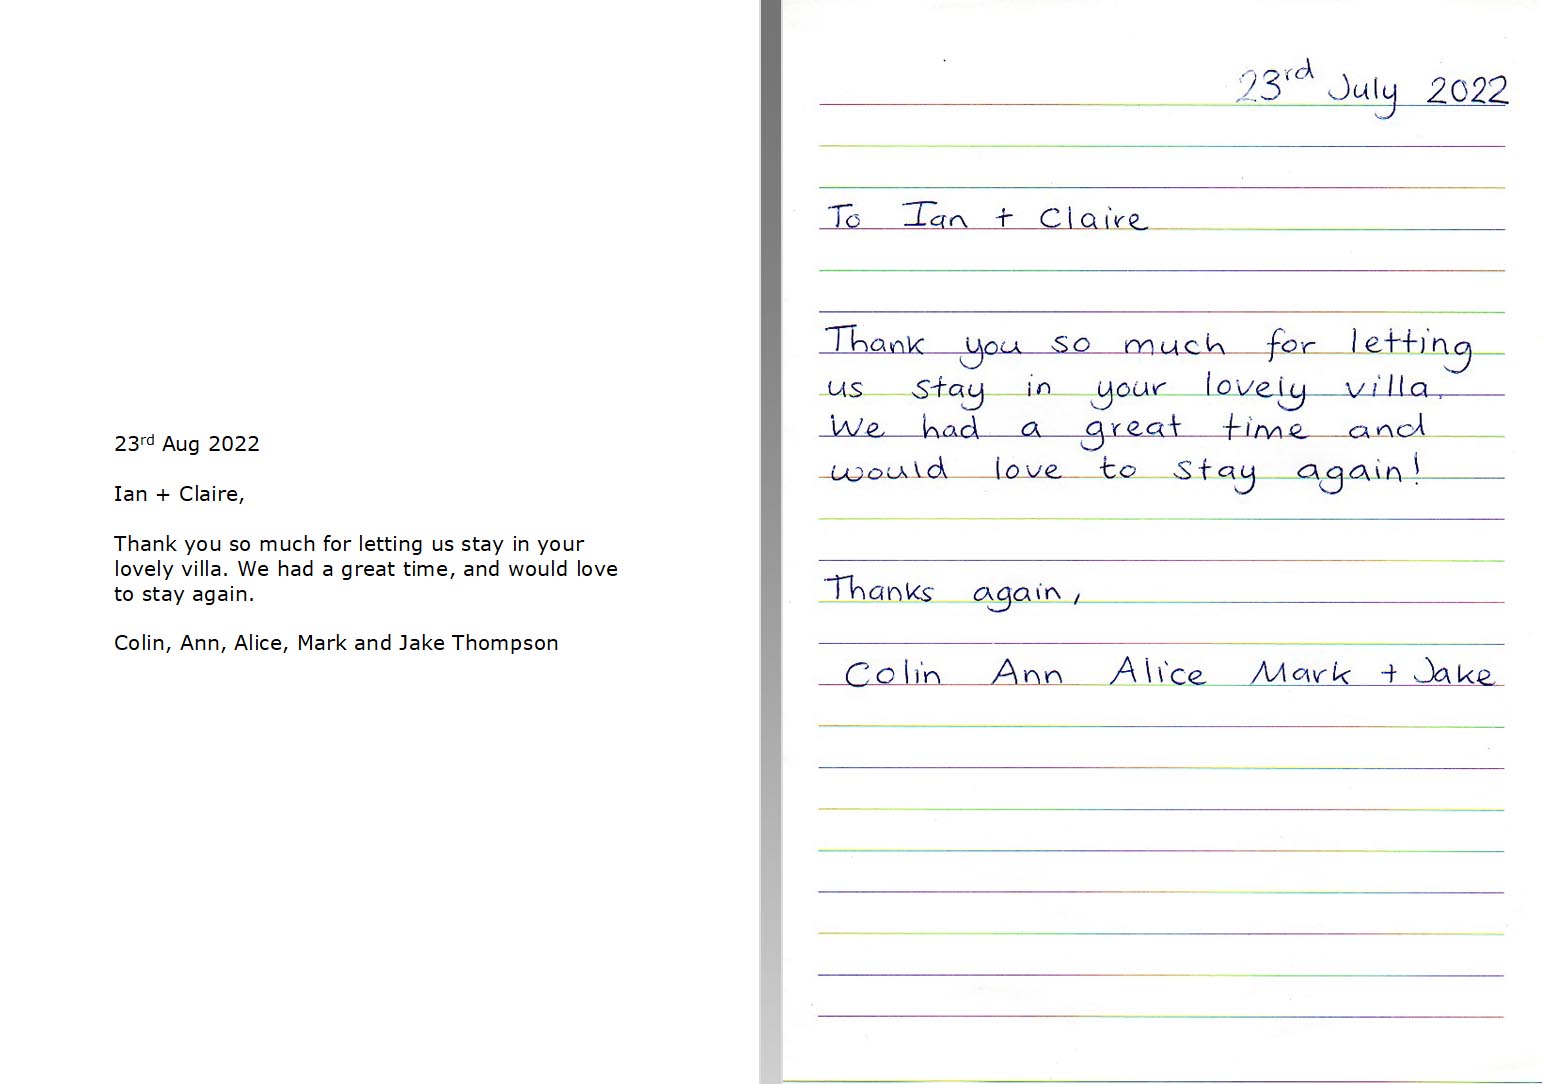 23rd Aug 2022
Ian + Claire,
Thank you so much for letting us stay in your
lovely villa. We had a great time, and would love
to stay again.
Colin, Ann, Alice, Mark and Jake Thompson
23rd July 2022
To Ian + Claire
Thank you so much for letting
us stay in your lovely villa.
We had a great time and
would love to stay again!
Thanks again,
Colin Ann Alice Mark + Jake